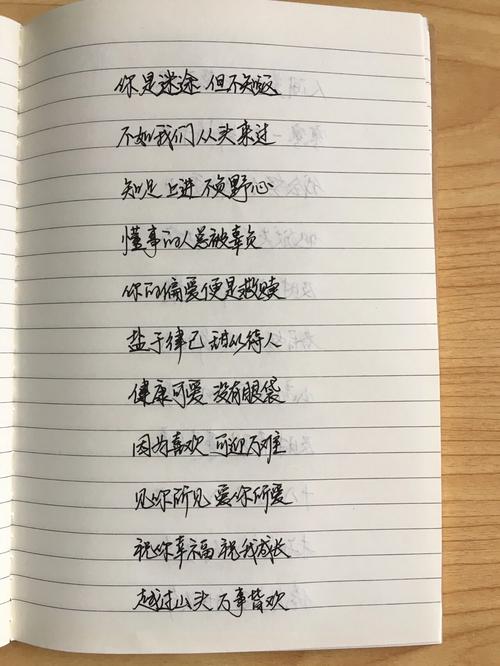 你是迷途 但不知返
不如我们从头来过
知足上进 不负野心
懂事的人总被辜负
你的偏爱便是救赎
盐于律己 甜以待人
健康可爱 没有眼袋
因为喜欢 可迎万难
见你所见 爱你所爱
祝你幸福 祝我成长
越过山头 万事皆欢